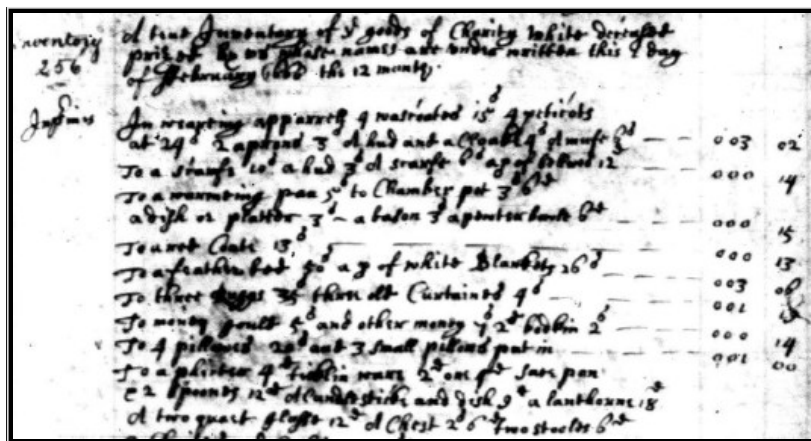 Inventory
256
A true Inventory of ye goods of Charity White deceased
prized by us whose names are under written this 2 day
of February the 12 month
In wearing apparrell 4 wascoates 15s 4 peticots
at 24s 2 aprons 3s A hud and a Cloake 4s A mufe
003 02
To a scarfe 10s a hud 3s A scarfe 6s a p of 12d
000 14
To a warmeing pan 5s to Chamber pot 3s 6d
a dish or platter 3s a bason 3s a pewter 6d
000 15
To a red Coate 13s
000 13
To a feather bed 50s a p of white Blankets 26s
003
To three Ruggs 35s three old Curtaines 4s
001
To money gould 5s and other money 7s 2d bodkin 2s
000 14
To 4 pillowes 20s and 3 small pillows put in
001 00
To a 4d wave 2d one pan
2 Spoones 12d A Candlestick and dish 9d a lanthorne 18d
A two quart glasse 12d A Chest 2s 6d two stooles 6d